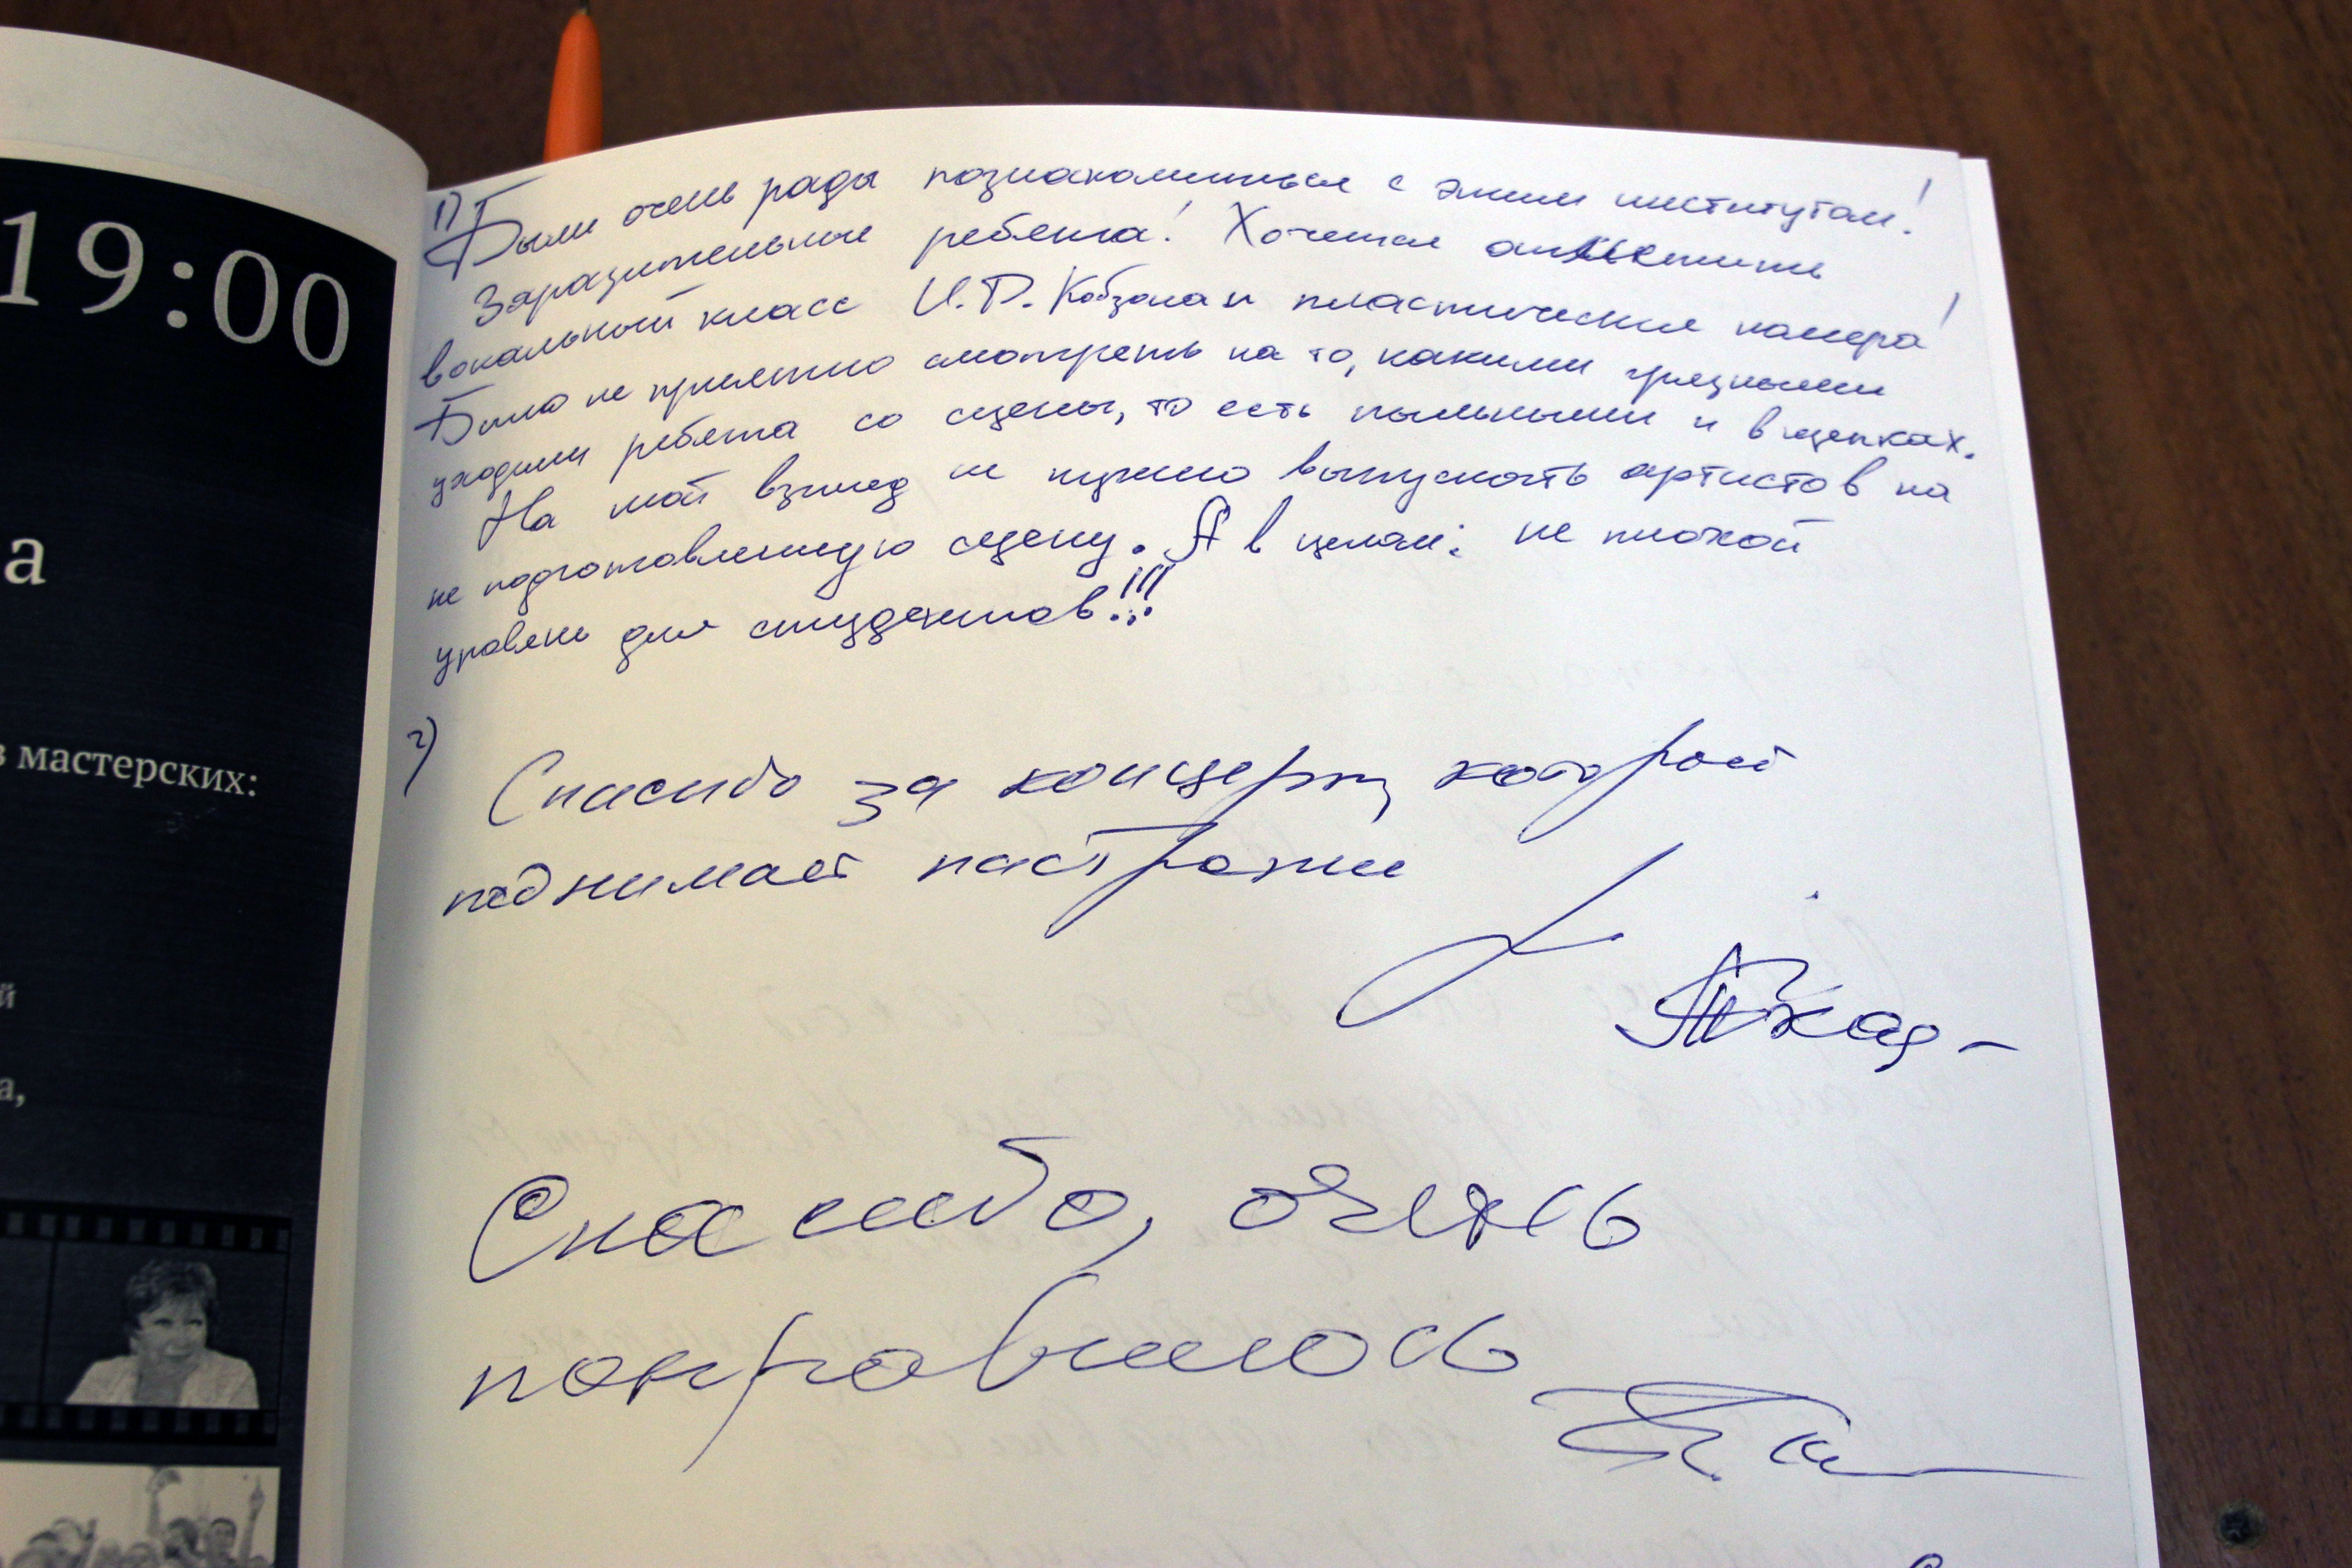 19:00
а
в мастерских:
й
а,
1) Были очень рады познакомиться с этим институтом!
Заразительные ребята! Хочется отметить
вокальный класс И.Д. Кобзона и пластические номера!
Было не приятно смотреть на то, какими грязными
уходили ребята со сцены, то есть пыльными и в щепках.
На мой взгляд не нужно выпускать артистов на
не подготовленную сцену. А в целом: не плохой
уровень для студентов!!!
2)
Спасибо за концерт, который
поднимает настроение
Спасибо, очень
понравилось